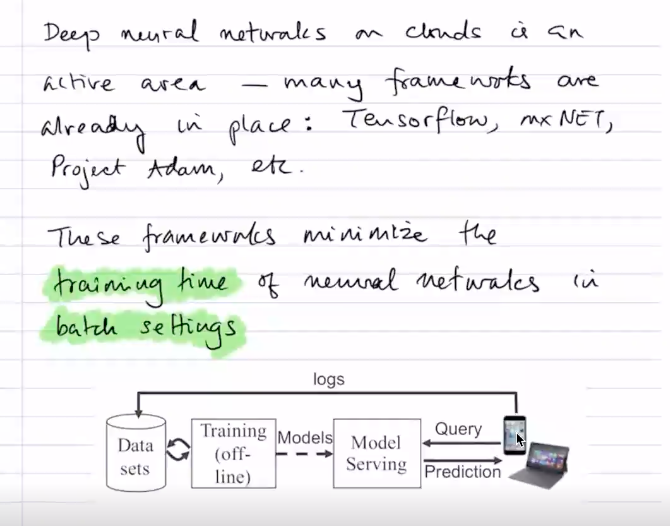 Deep neural networks on clouds is an
active area — many frameworks are
already in place: Tensorflow, mxNET,
Project Adam, etc.
These frameworks minimize the
training time of neural networks in
batch settings
logs
Data
sets
Training
(off-
line)
Models
Model
Serving
Query
Prediction